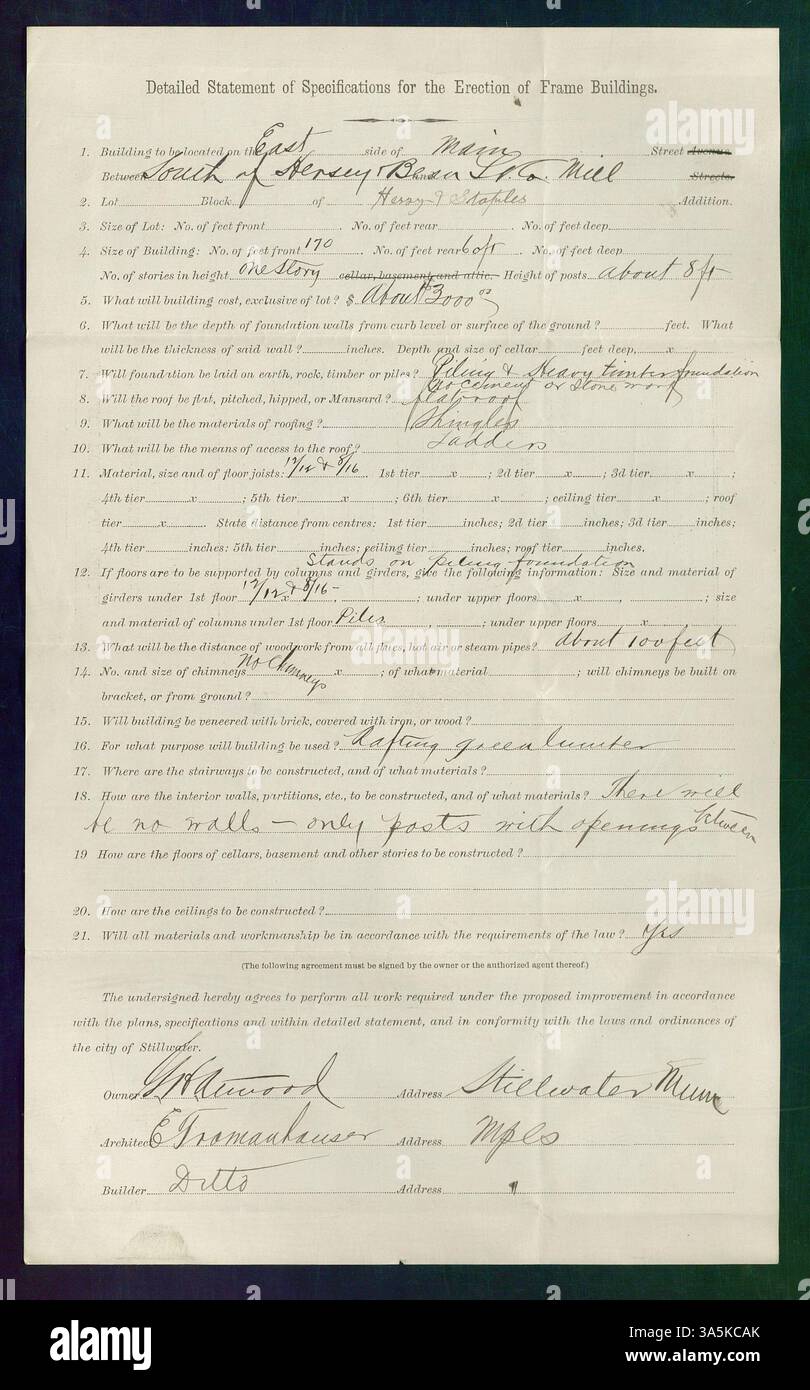 Detailed Statement of Specifications for the Erection of Frame Buildings.
1. Building to be located on the East side of Main Street Avenue.
Between South of Hersey Bean L. Co. Mill Streets.
2. Lot Block of Hersy & Staples Addition.
3. Size of Lot: No. of feet front No. of feet rear No. of feet deep
4. Size of Building: No. of feet front 170 No. of feet rear 60 ft No. of feet deep
No. of stories in height one story cellar, basement, and attic. Height of posts about 8 ft
5. What will building cost, exclusive of lot? $ About $3000 00
6. What will be the depth of foundation walls from curb level or surface of the ground? feet. What
will be the thickness of said wall? inches. Depth and size of cellar feet deep, x
7. Will foundation be laid on earth, rock, timber or piles? Piling & Heavy timber foundation
No cement or stone work
8. Will the roof be flat, pitched, hipped, or Mansard? flat roof
9. What will be the materials of roofing? Shingles
10. What will be the means of access to the roof? Ladders
11. Material, size and of floor joists: 12/12 & 8/16 1st tier x ; 2d tier x ; 3d tier x ;
4th tier x ; 5th tier x ; 6th tier x ; ceiling tier x ; roof
tier x . State distance from centres: 1st tier inches; 2d tier inches; 3d tier inches;
4th tier inches: 5th tier inches; ceiling tier inches; roof tier inches.
Stands on piling foundation
12. If floors are to be supported by columns and girders, give the following information: Size and material of
girders under 1st floor 12/12 x & 8/16 - , ; under upper floors x , ; size
and material of columns under 1st floor Piles , ; under upper floors x
13. What will be the distance of woodwork from all flues, hot air or steam pipes? about 100 feet
14. No. and size of chimneys No Chimneys x ; of what material ; will chimneys be built on
bracket, or from ground?
15. Will building be veneered with brick, covered with iron, or wood?
16. For what purpose will building be used? Rafting green lumber
17. Where are the stairways to be constructed, and of what materials?
18. How are the interior walls, partitions, etc., to be constructed, and of what materials? There will
be no walls — only posts with openings between
19 How are the floors of cellars, basement and other stories to be constructed?
20. How are the ceilings to be constructed?
21. Will all materials and workmanship be in accordance with the requirements of the law? Yes
(The following agreement must be signed by the owner or the authorized agent thereof.)
The undersigned hereby agrees to perform all work required under the proposed improvement in accordance
with the plans, specifications and within detailed statement, and in conformity with the laws and ordinances of
the city of Stillwater.
Owner Atwood Address Stillwater Minn
Architect E Tromanhauser Address Mpls
Builder Ditto Address "
alamy
Image ID: 3A5KCAK
www.alamy.com